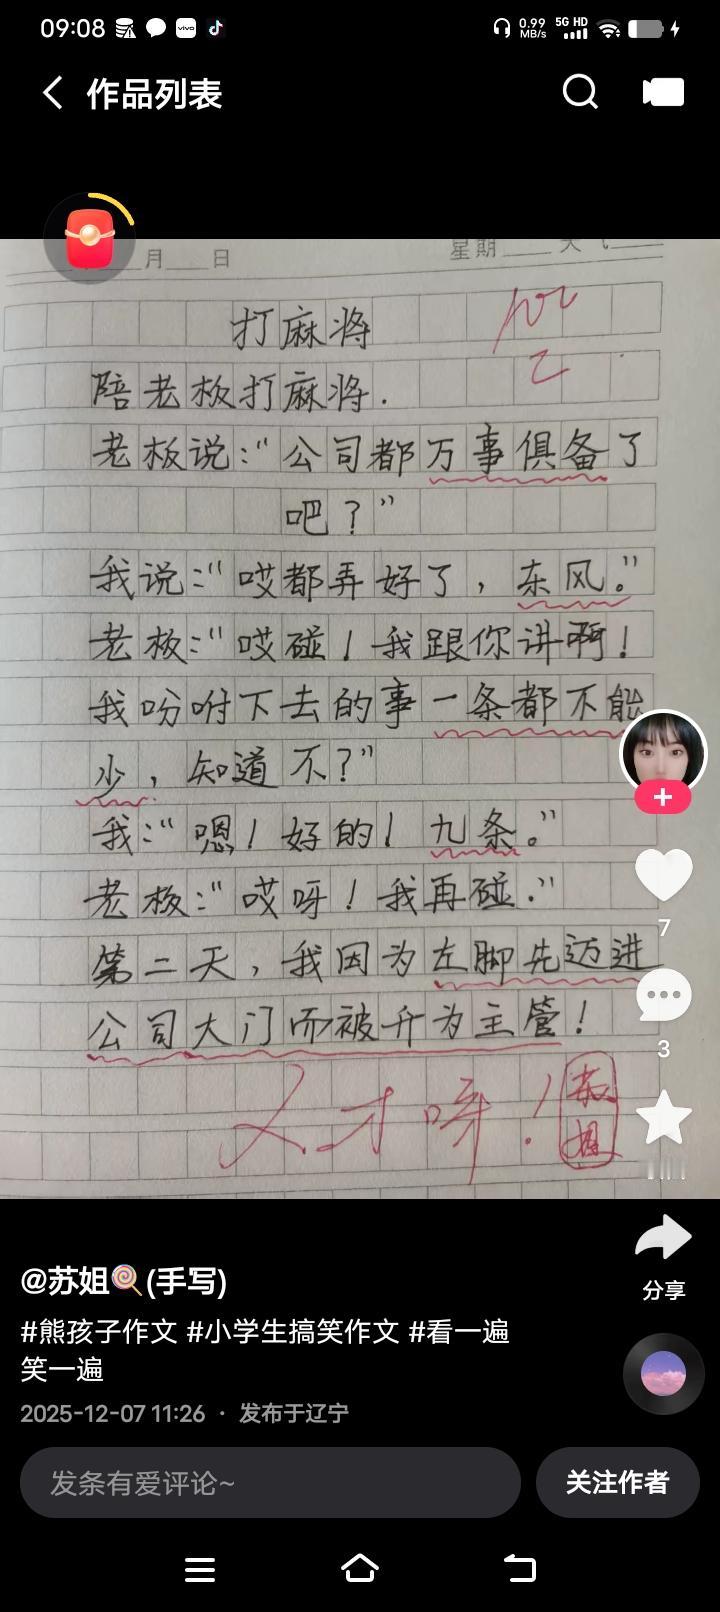 09:08
0.99 MB/s
5G HD
作品列表
月 日
星期 天气
打麻将
陪老板打麻将.
老板说:“公司都万事俱备了
吧?”
我说:“哎都弄好了,东风。”
老板:“哎碰!我跟你讲啊!
我吩咐下去的事一条都不能
少,知道不?”
我:“嗯!好的!九条。”
老板:“哎呀!我再碰.”
第二天,我因为左脚先迈进
公司大门而被升为主管!
人才呀!
7
3
分享
@苏姐🍭(手写)
#熊孩子作文 #小学生搞笑作文 #看一遍
笑一遍
2025-12-07 11:26 · 发布于辽宁
发条有爱评论~
关注作者